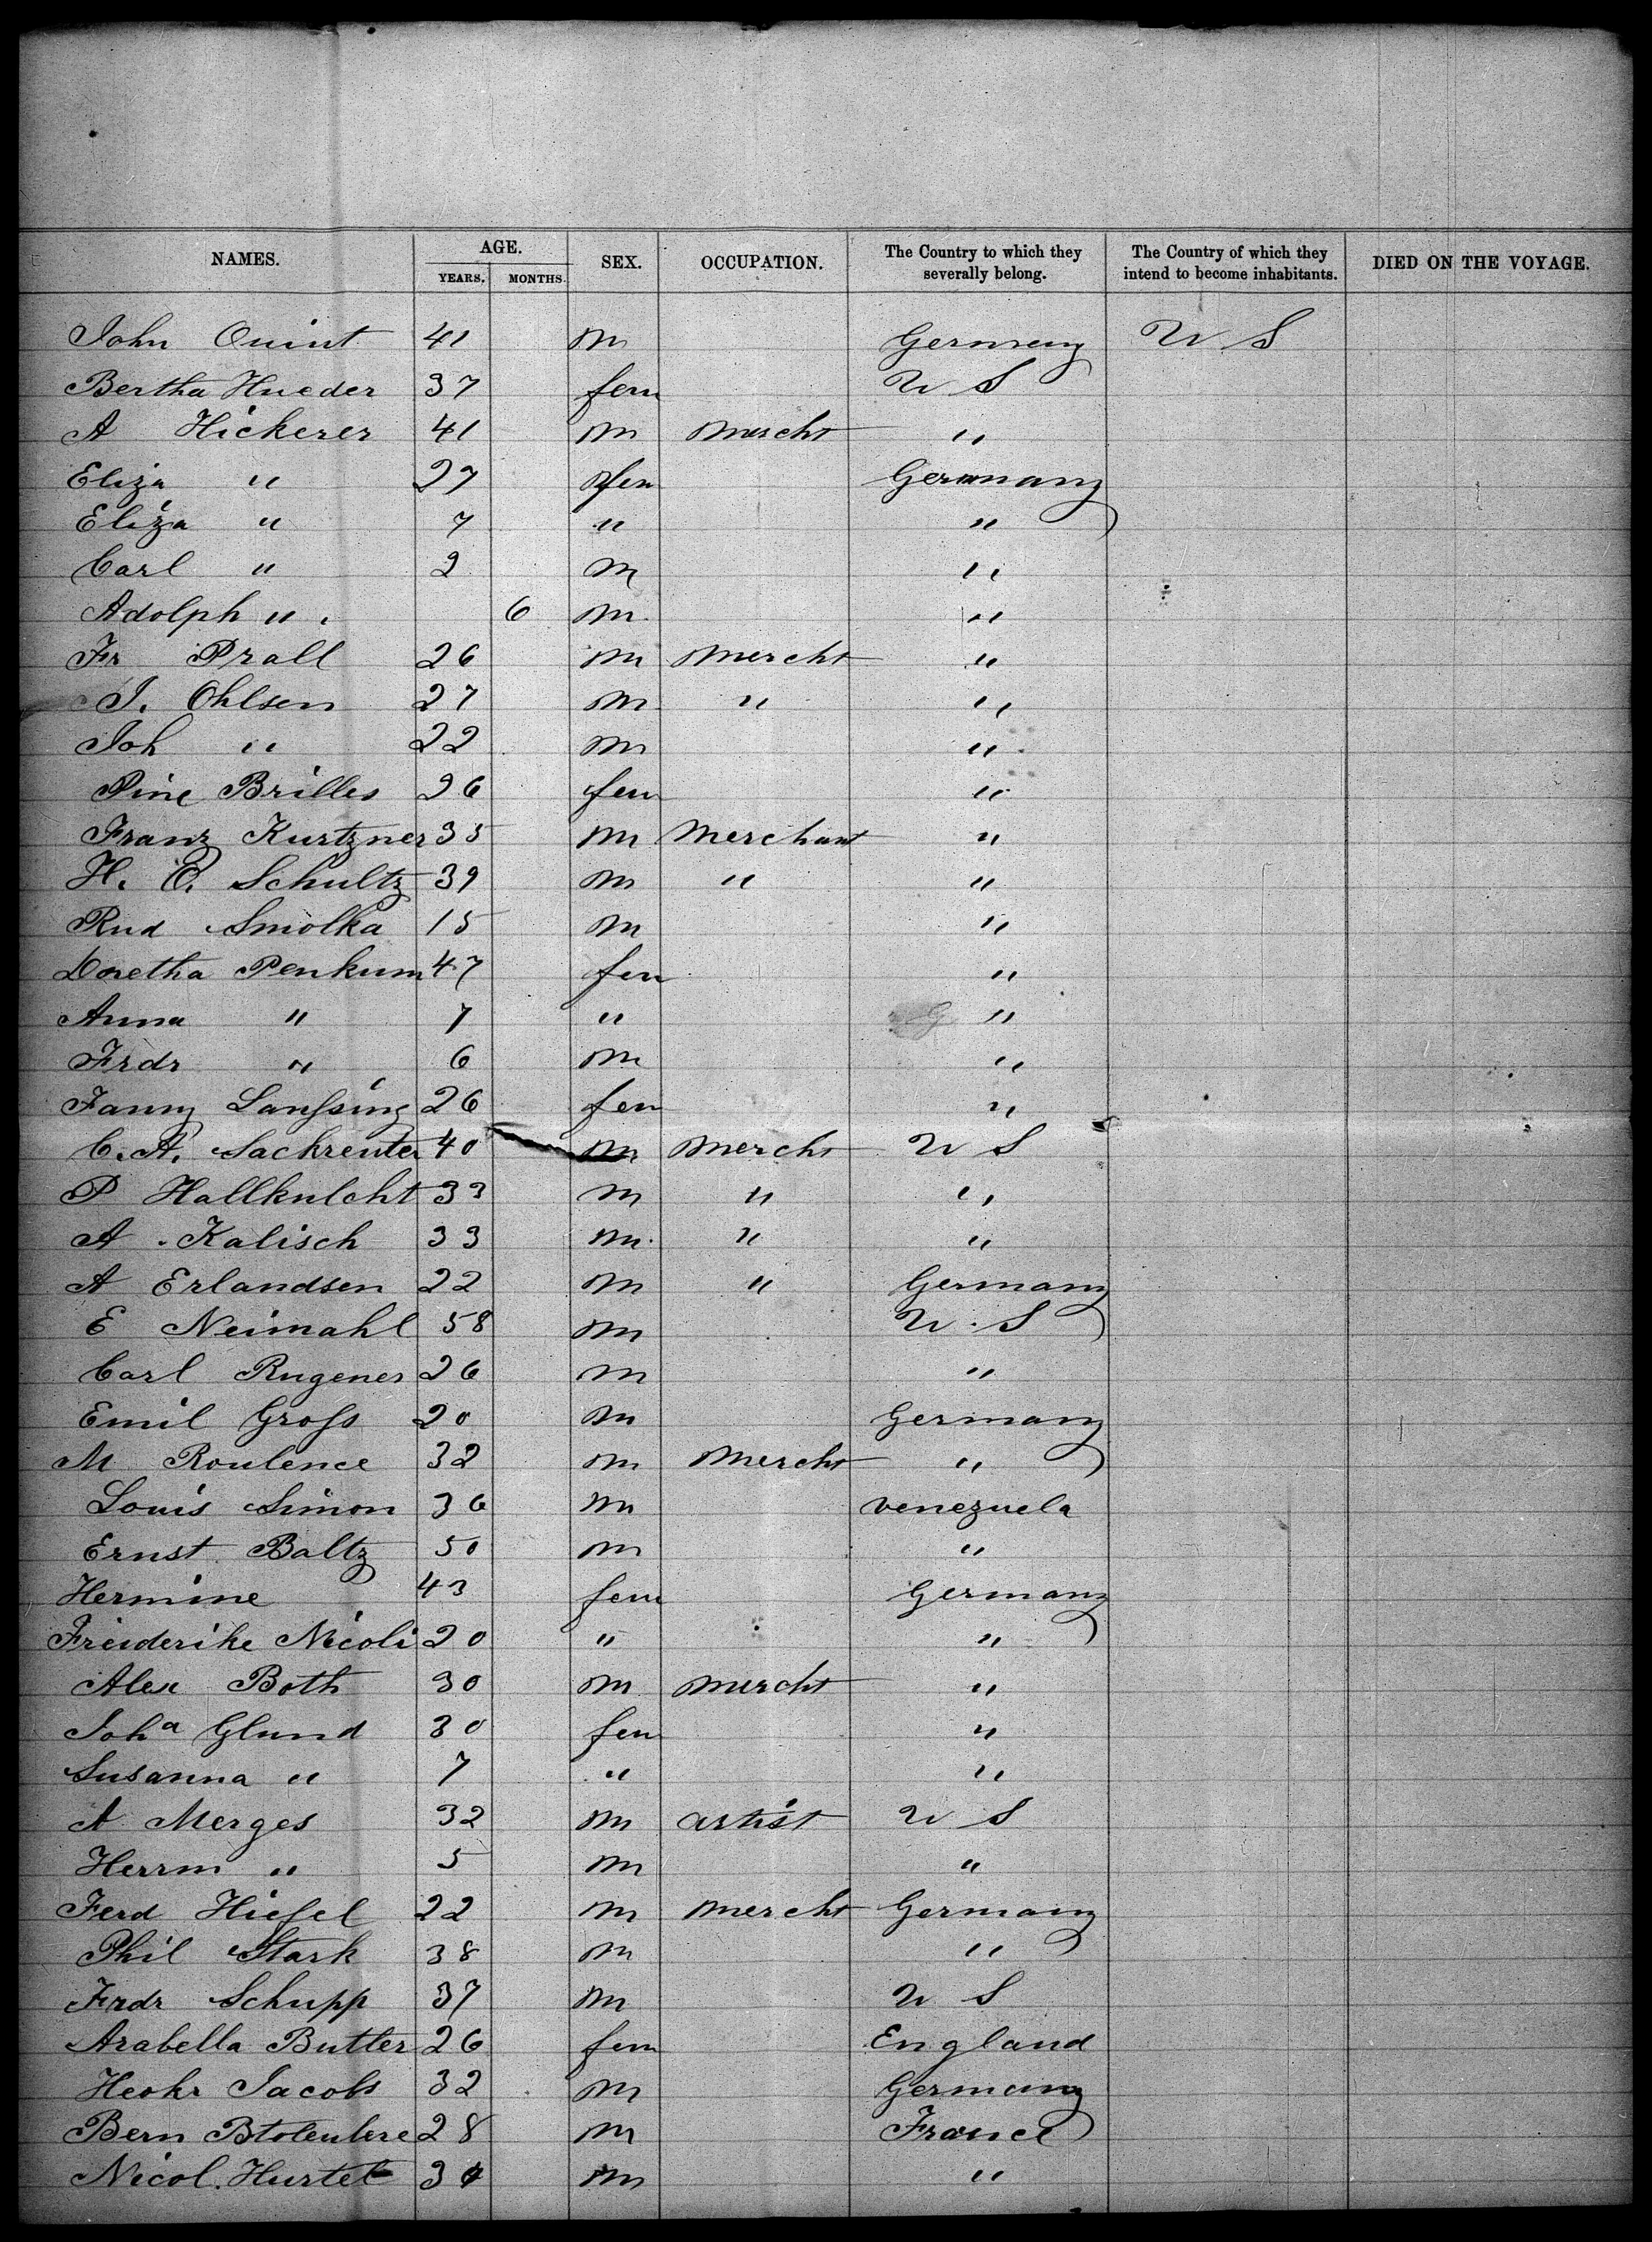 NAMES. AGE. SEX. OCCUPATION. The Country to which they severally belong. The Country of which they intend to become inhabitants. DIED ON THE VOYAGE.
YEARS. MONTHS.
John Quint 41 m Germany U S
Bertha Hueder 37 fem U S
A Hickerer 41 m Mercht "
Eliza " 27 fem Germany
Eliza " 7 " "
Carl " 2 m "
Adolph " 6 m "
Fr Prall 26 m Mercht "
J. Ohlsen 27 m " "
Joh " 22 m "
Pine Brilles 26 fem "
Franz Kurtzner 35 m Merchant "
H. C. Schultz 39 m " "
Rud Smolka 15 m "
Doretha Penkum 47 fem "
Anna " 7 " "
Frdr " 6 m "
Fanny Lanssing 26 fem "
C. A. Sackreuter 40 m Mercht U S
P Hallkulcht 33 m " "
A Kalisch 33 m " "
A Erlandsen 22 m " Germany
E Neimahl 58 m U. S
Carl Rugener 26 m "
Emil Gross 20 m Germany
M Roulence 32 m Mercht "
Louis Simon 36 m Venezuela
Ernst Baltz 50 m "
Hermine 43 fem Germany
Freiderike Nicoli 20 " "
Alex Both 30 m Mercht "
Joha Glund 30 fem "
Susanna " 7 " "
A Merges 32 m artist U S
Herrm " 5 m "
Ferd Hiesel 22 m Mercht Germany
Phil Stark 38 m "
Frdr Schupp 37 m U S
Arabella Butler 26 fem England
Jacobs 32 m Germany
Bern 28 m France
Nicol. Hurtel 30 m "